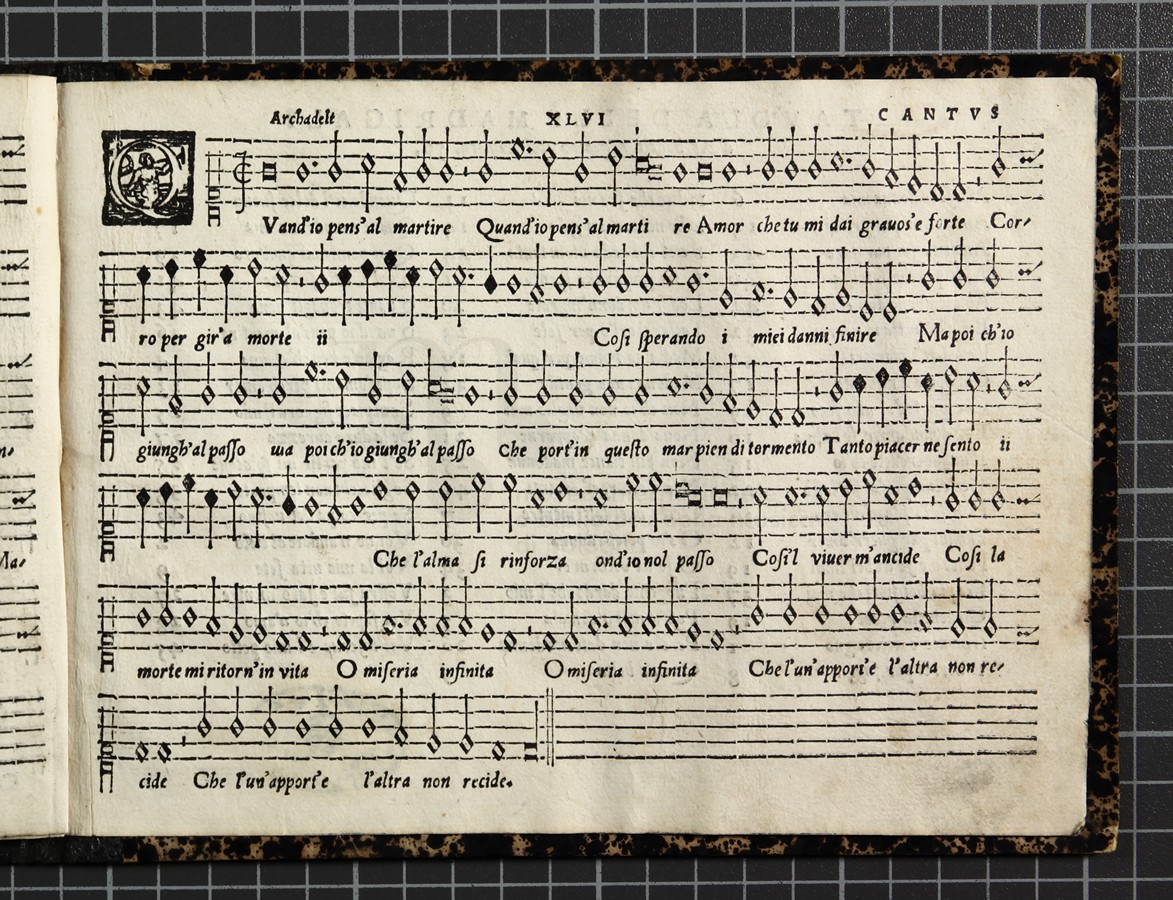 Archadelt XLVI CANTVS
QVand'io pens'al martire Quand'io pens'al marti re Amor che tu mi dai grauos'e forte Cor-
ro per gir'a morte ii Cosi sperando i miei danni finire Ma poi ch'io
giungh'al passo ma poi ch'io giungh'al passo Che port'in questo mar pien di tormento Tanto piacer ne sento ii
Che l'alma si rinforza ond'io nol passo Cosi'l viuer m'ancide Cosi la
morte mi ritorn'in vita O miseria infinita O miseria infinita Che l'un'apport'e l'altra non re-
cide Che l'un'apport'e l'altra non recide.